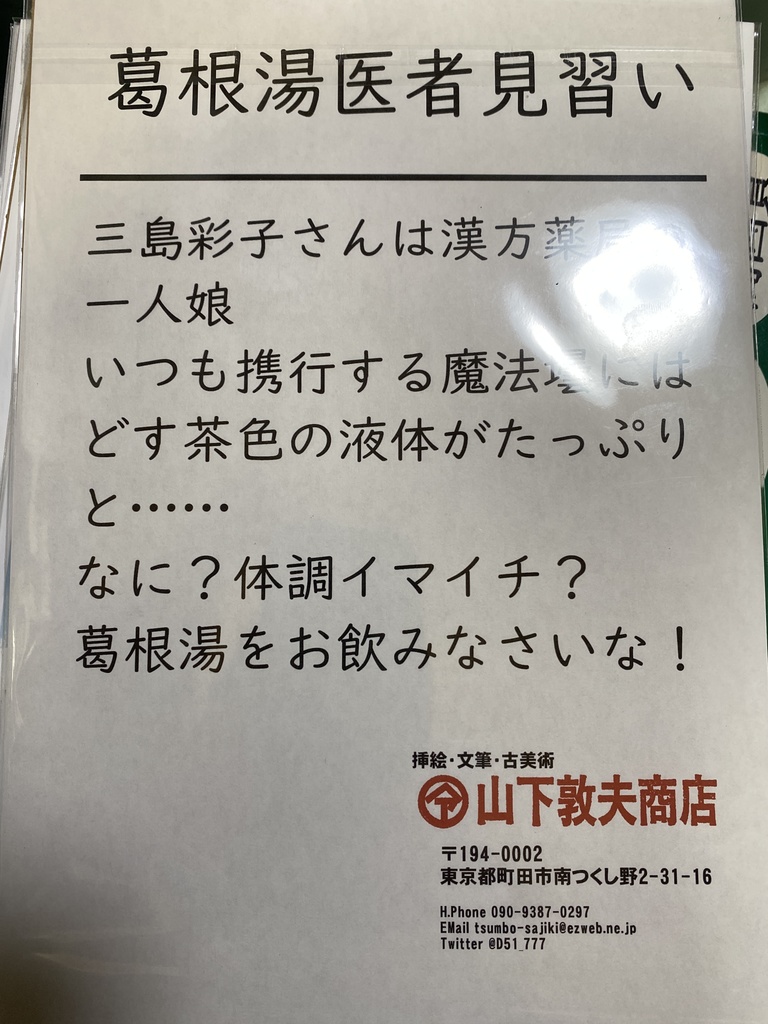 葛根湯医者見習い
三島彩子さんは漢方薬局の
一人娘
いつも携行する魔法壜には
どす茶色の液体がたっぷり
と……
なに？体調イマイチ？
葛根湯をお飲みなさいな！
挿絵・文筆・古美術
山下敦夫商店
〒194-0002
東京都町田市南つくし野2-31-16
H.Phone 090-9387-0297
EMail tsumbo-sajiki@ezweb.ne.jp
Twitter @D51_777